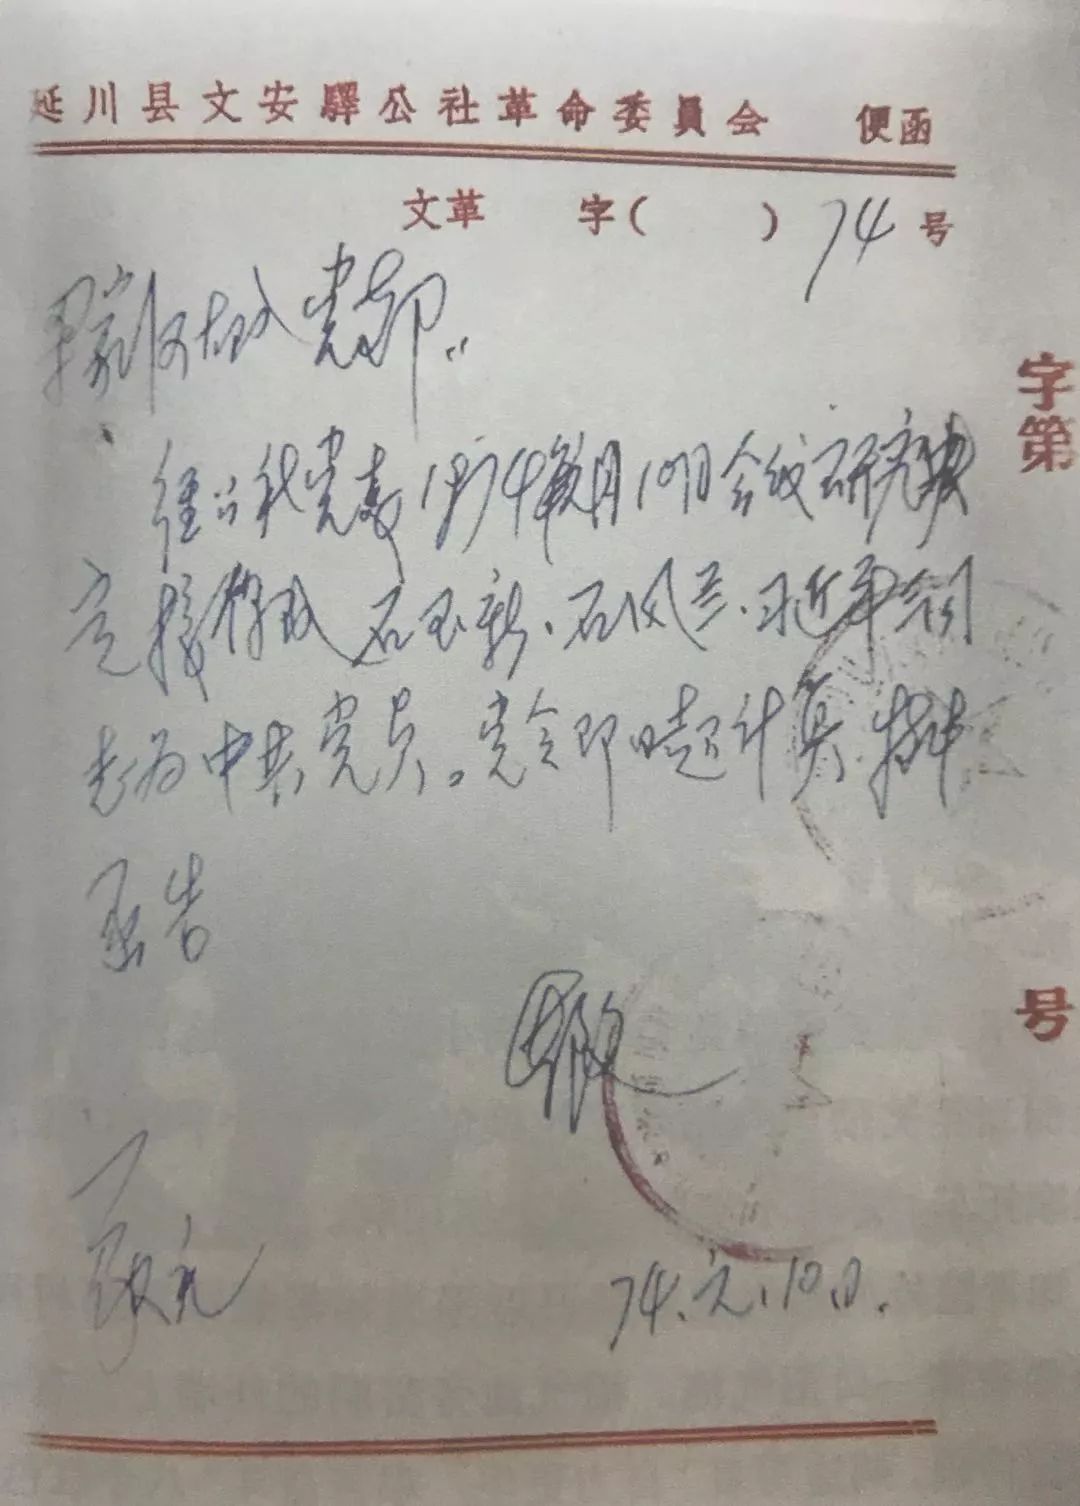 延川县文安驛公社革命委員会 便函
文革 字( ) 74 号
梁家河大队党支部:
经公社党委1974年元月10日会议研究决
定接收 石玉新、石凤兰、习近平三同
志为中共党员。党令即日起计算。特此
函告
74.元.10日.
字第
号